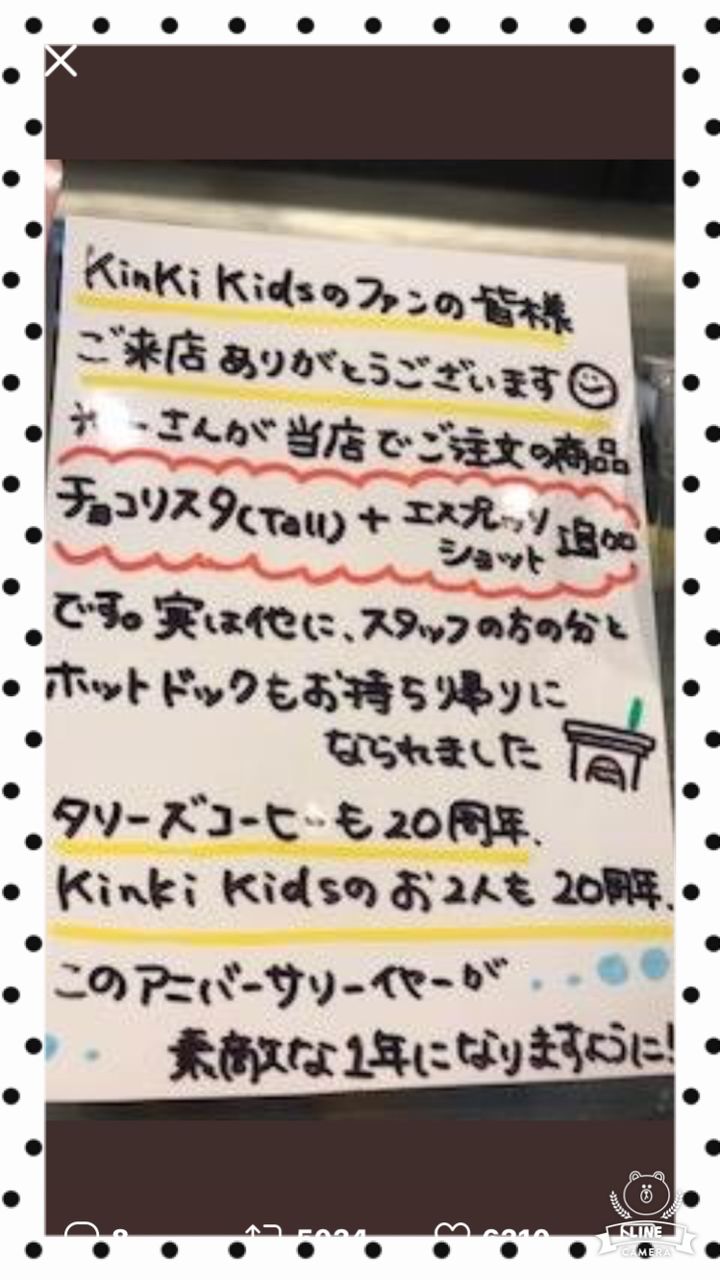 KinKi Kidsのファンの皆様
ご来店ありがとうございます
さんが当店でご注文の商品
チョコリスタ(Tall) + エスプレッソ
ショット 追加
です。実は他に、スタッフの方の分と
ホットドックもお持ち帰りに
なられました
タリーズコーヒーも20周年、
Kinki Kidsのお2人も20周年、
このアニバーサリーイヤーが
素敵な1年になりますように!
LINE
CAMERA